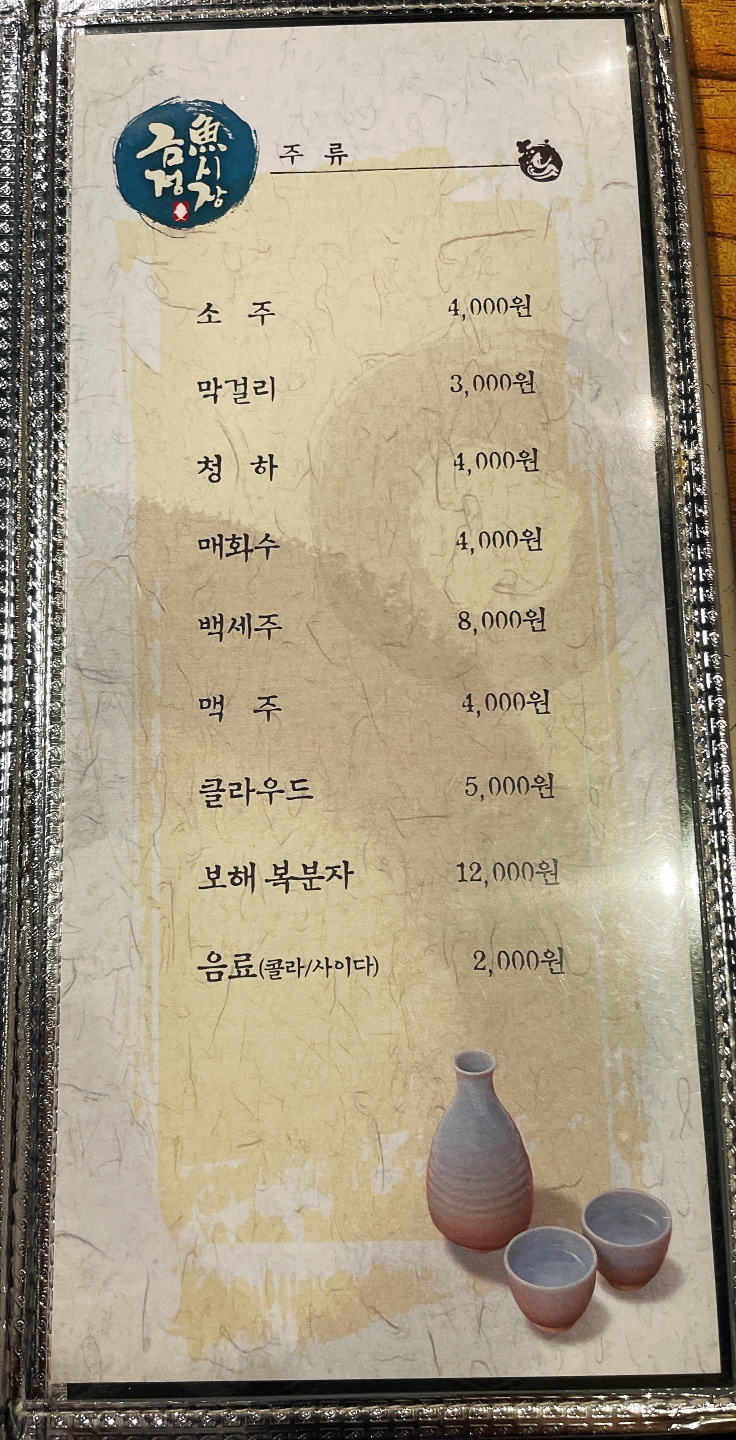 금정 魚시장
주 류
소 주 4,000원
막걸리 3,000원
청 하 4,000원
매화수 4,000원
백세주 8,000원
맥 주 4,000원
클라우드 5,000원
보해 복분자 12,000원
음료(콜라/사이다) 2,000원